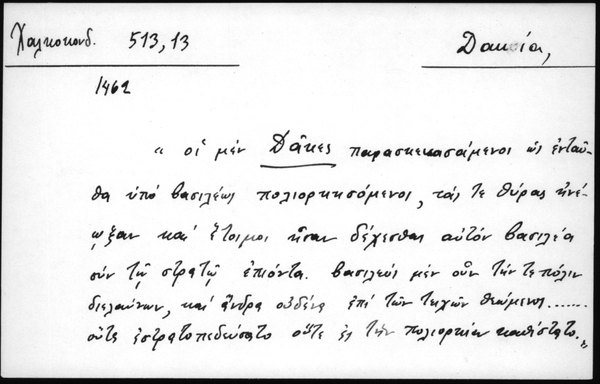 Χαλκοκονδ. 513,13
Δακία,
1462
« οἱ μέν Δᾶκες παρασκευασάμενοι ὡς ἐνταῦ-
θα ὑπό βασιλέως πολιορκησόμενοι, τάς τε θύρας ἠνέ-
ῳξαν καί ἕτοιμοι ἦσαν δέχεσθαι αὐτόν βασιλέα
σύν τῷ στρατῷ ἐπιόντα. βασιλεύς μέν οὖν τήν τε πόλιν
διελαύνων, καί ἄνδρα οὐδένα ἐπί τῶν τειχῶν θεώμενος.......
οὔτε ἐστρατοπεδεύσατο οὔτε ἐς τήν πολιορκίαν καθίστατο. »